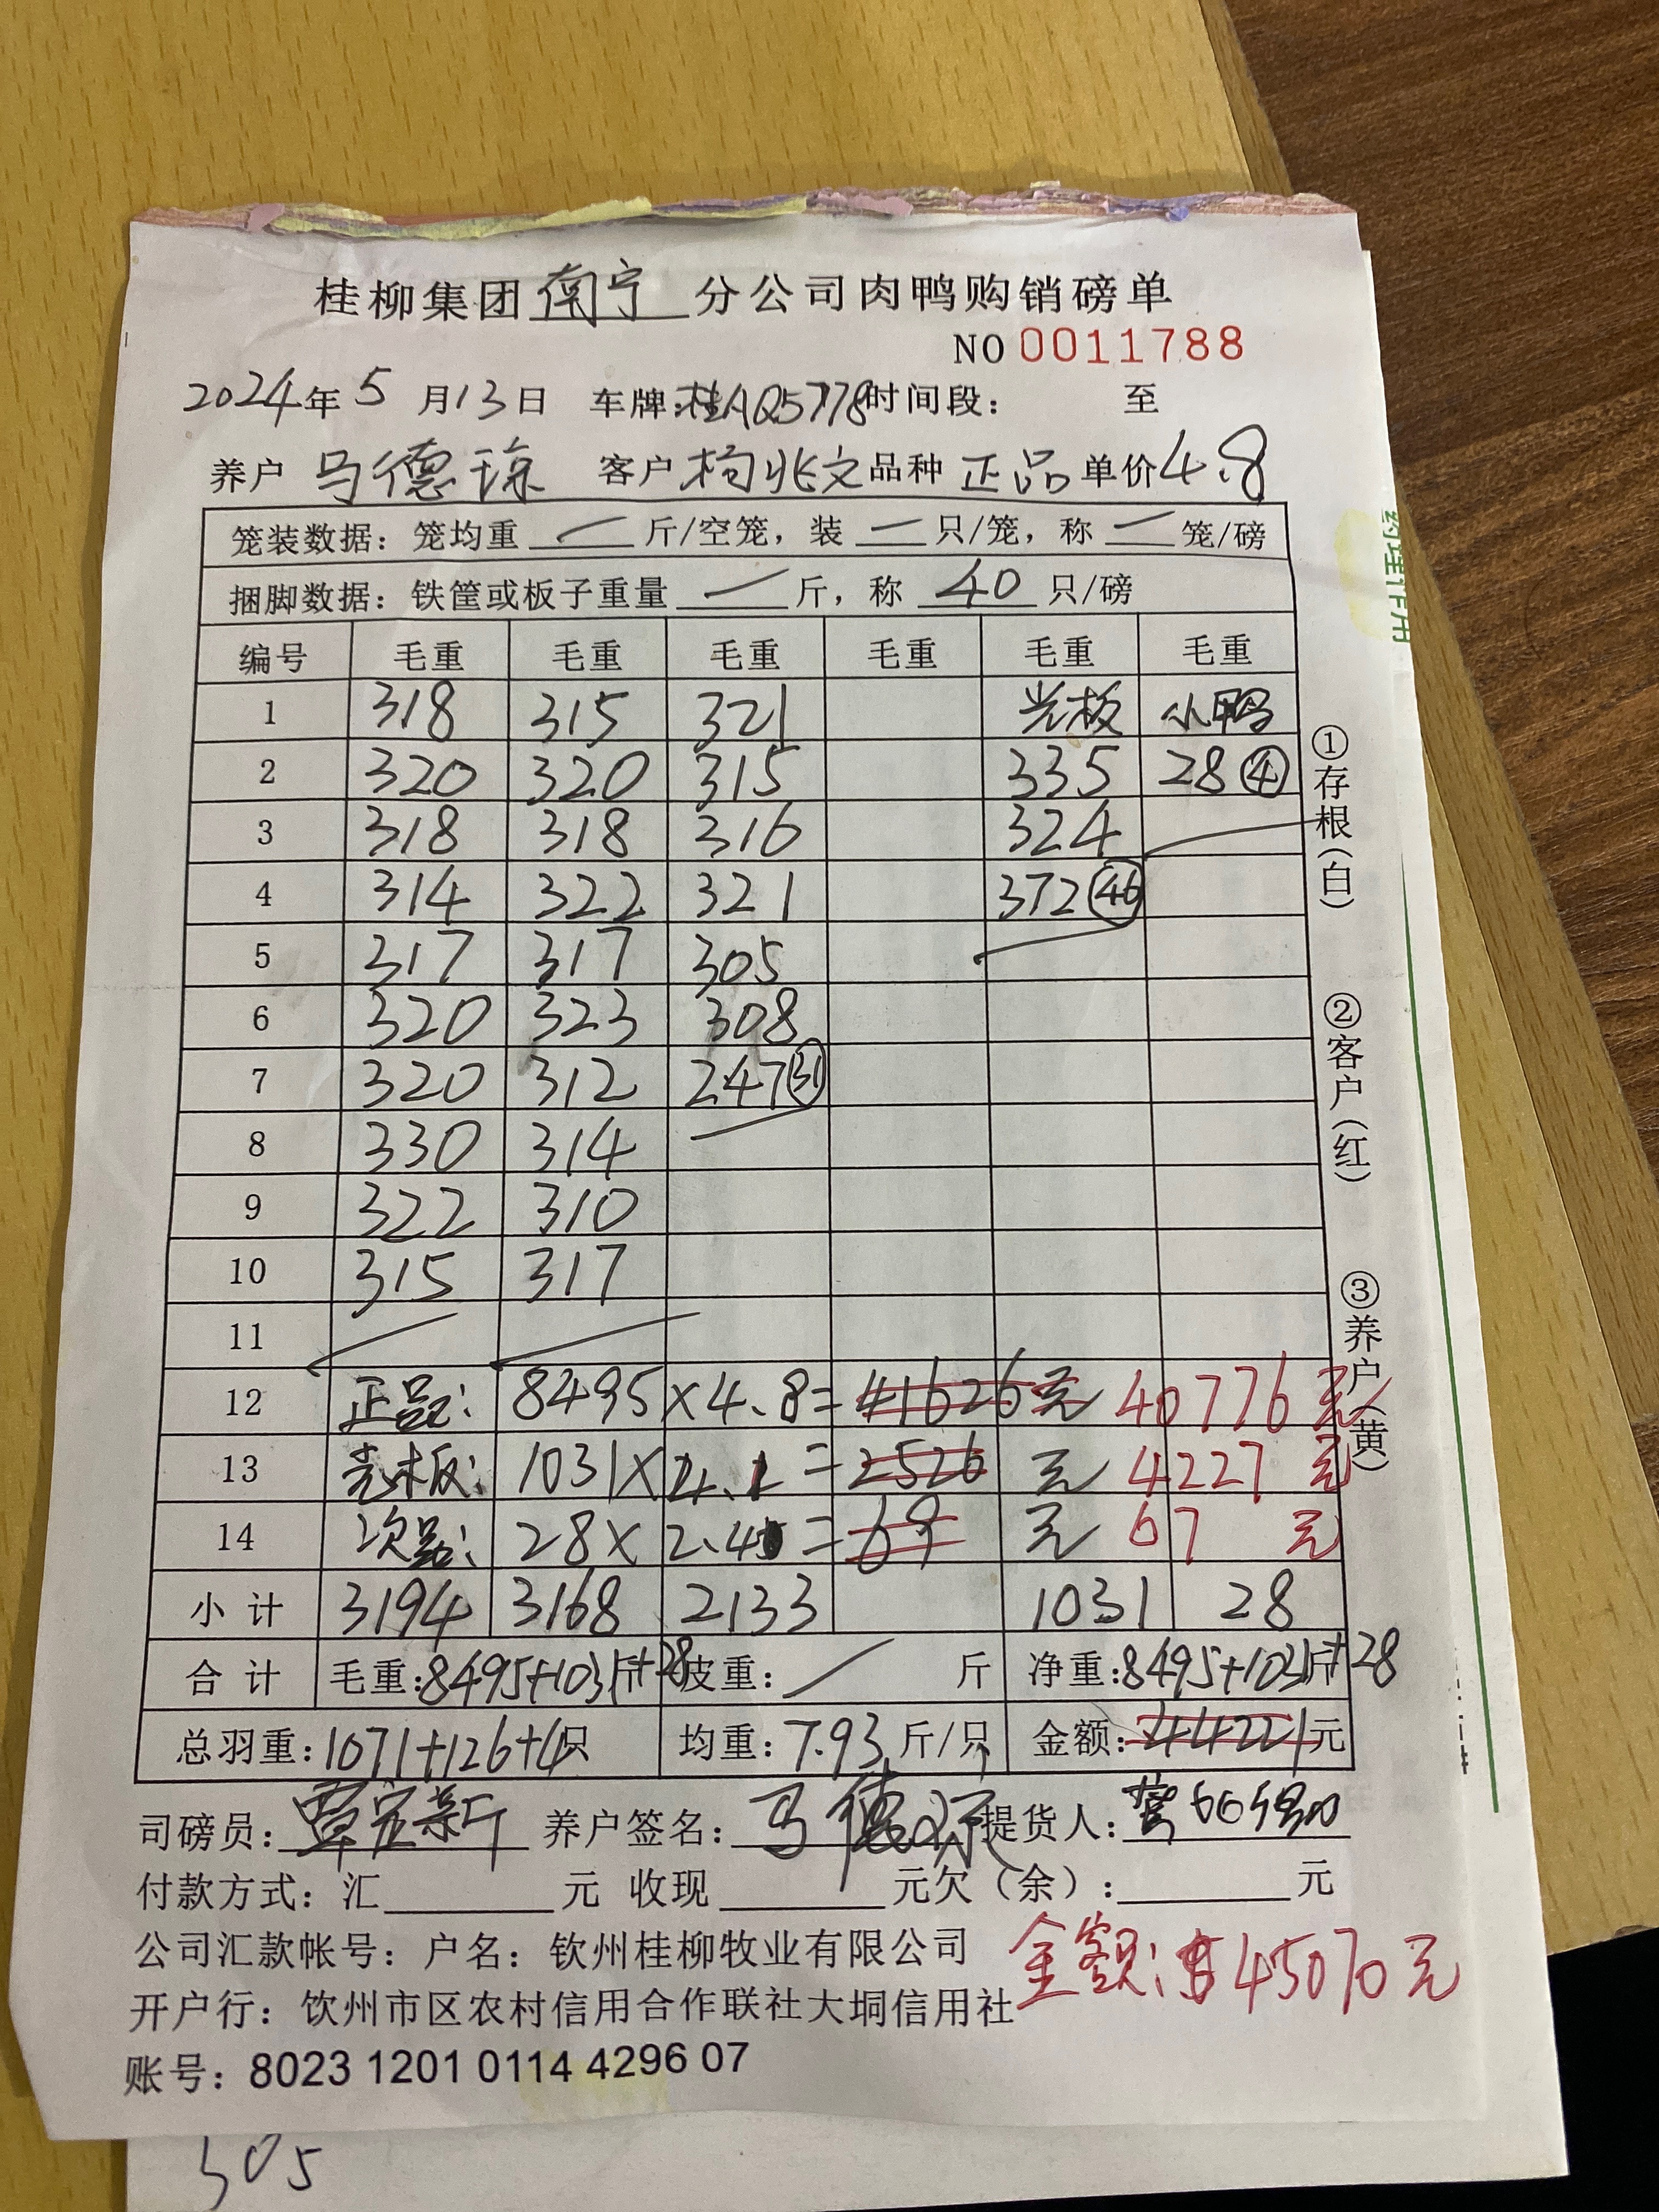 桂柳集团南宁分公司肉鸭购销磅单
NO 0011788
2024年5月13日 车牌:桂AQ5778时间段: 至
养户 马德琼 客户 柯兆文 品种 正品 单价4.8
笼装数据:笼均重 — 斤/空笼,装 — 只/笼,称 — 笼/磅
捆脚数据:铁筐或板子重量 — 斤,称 40 只/磅
编号 毛重 毛重 毛重 毛重 毛重 毛重
1 318 315 321 光板 小鸭
2 320 320 315 335 28 ④
3 318 318 316 324
4 314 322 321 372 ㊻
5 317 317 305
6 320 323 308
7 320 312 247 ㉛
8 330 314
9 322 310
10 315 317
11
12 正品: 8495×4.8=41626元 40776元
13 光板: 1031×4.1=2526元 4227元
14 次品: 28×2.4=69元 67元
小计 3194 3168 2133 1031 28
合计 毛重:8495+1031斤+28 皮重: / 斤 净重:8495+1031斤+28
总羽重:1071+126+4只 均重:7.93斤/只 金额:44221元
司磅员:覃宏新 养户签名:马德琼 提货人:
付款方式:汇 元 收现 元欠(余): 元
公司汇款帐号:户名:钦州桂柳牧业有限公司
金额:45070元
开户行:钦州市区农村信用合作联社大垌信用社
账号:8023 1201 0114 4296 07
①存根(白) ②客户(红) ③养户(黄)
305